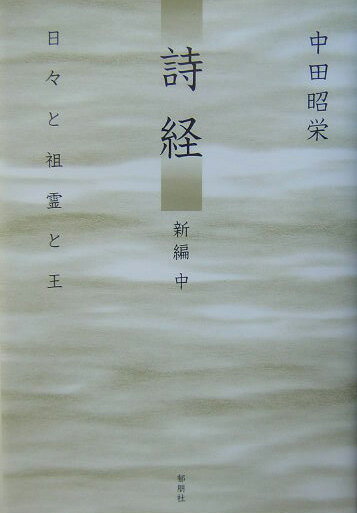 中田昭栄
詩経
新編 中
日々と祖霊と王
郁朋社